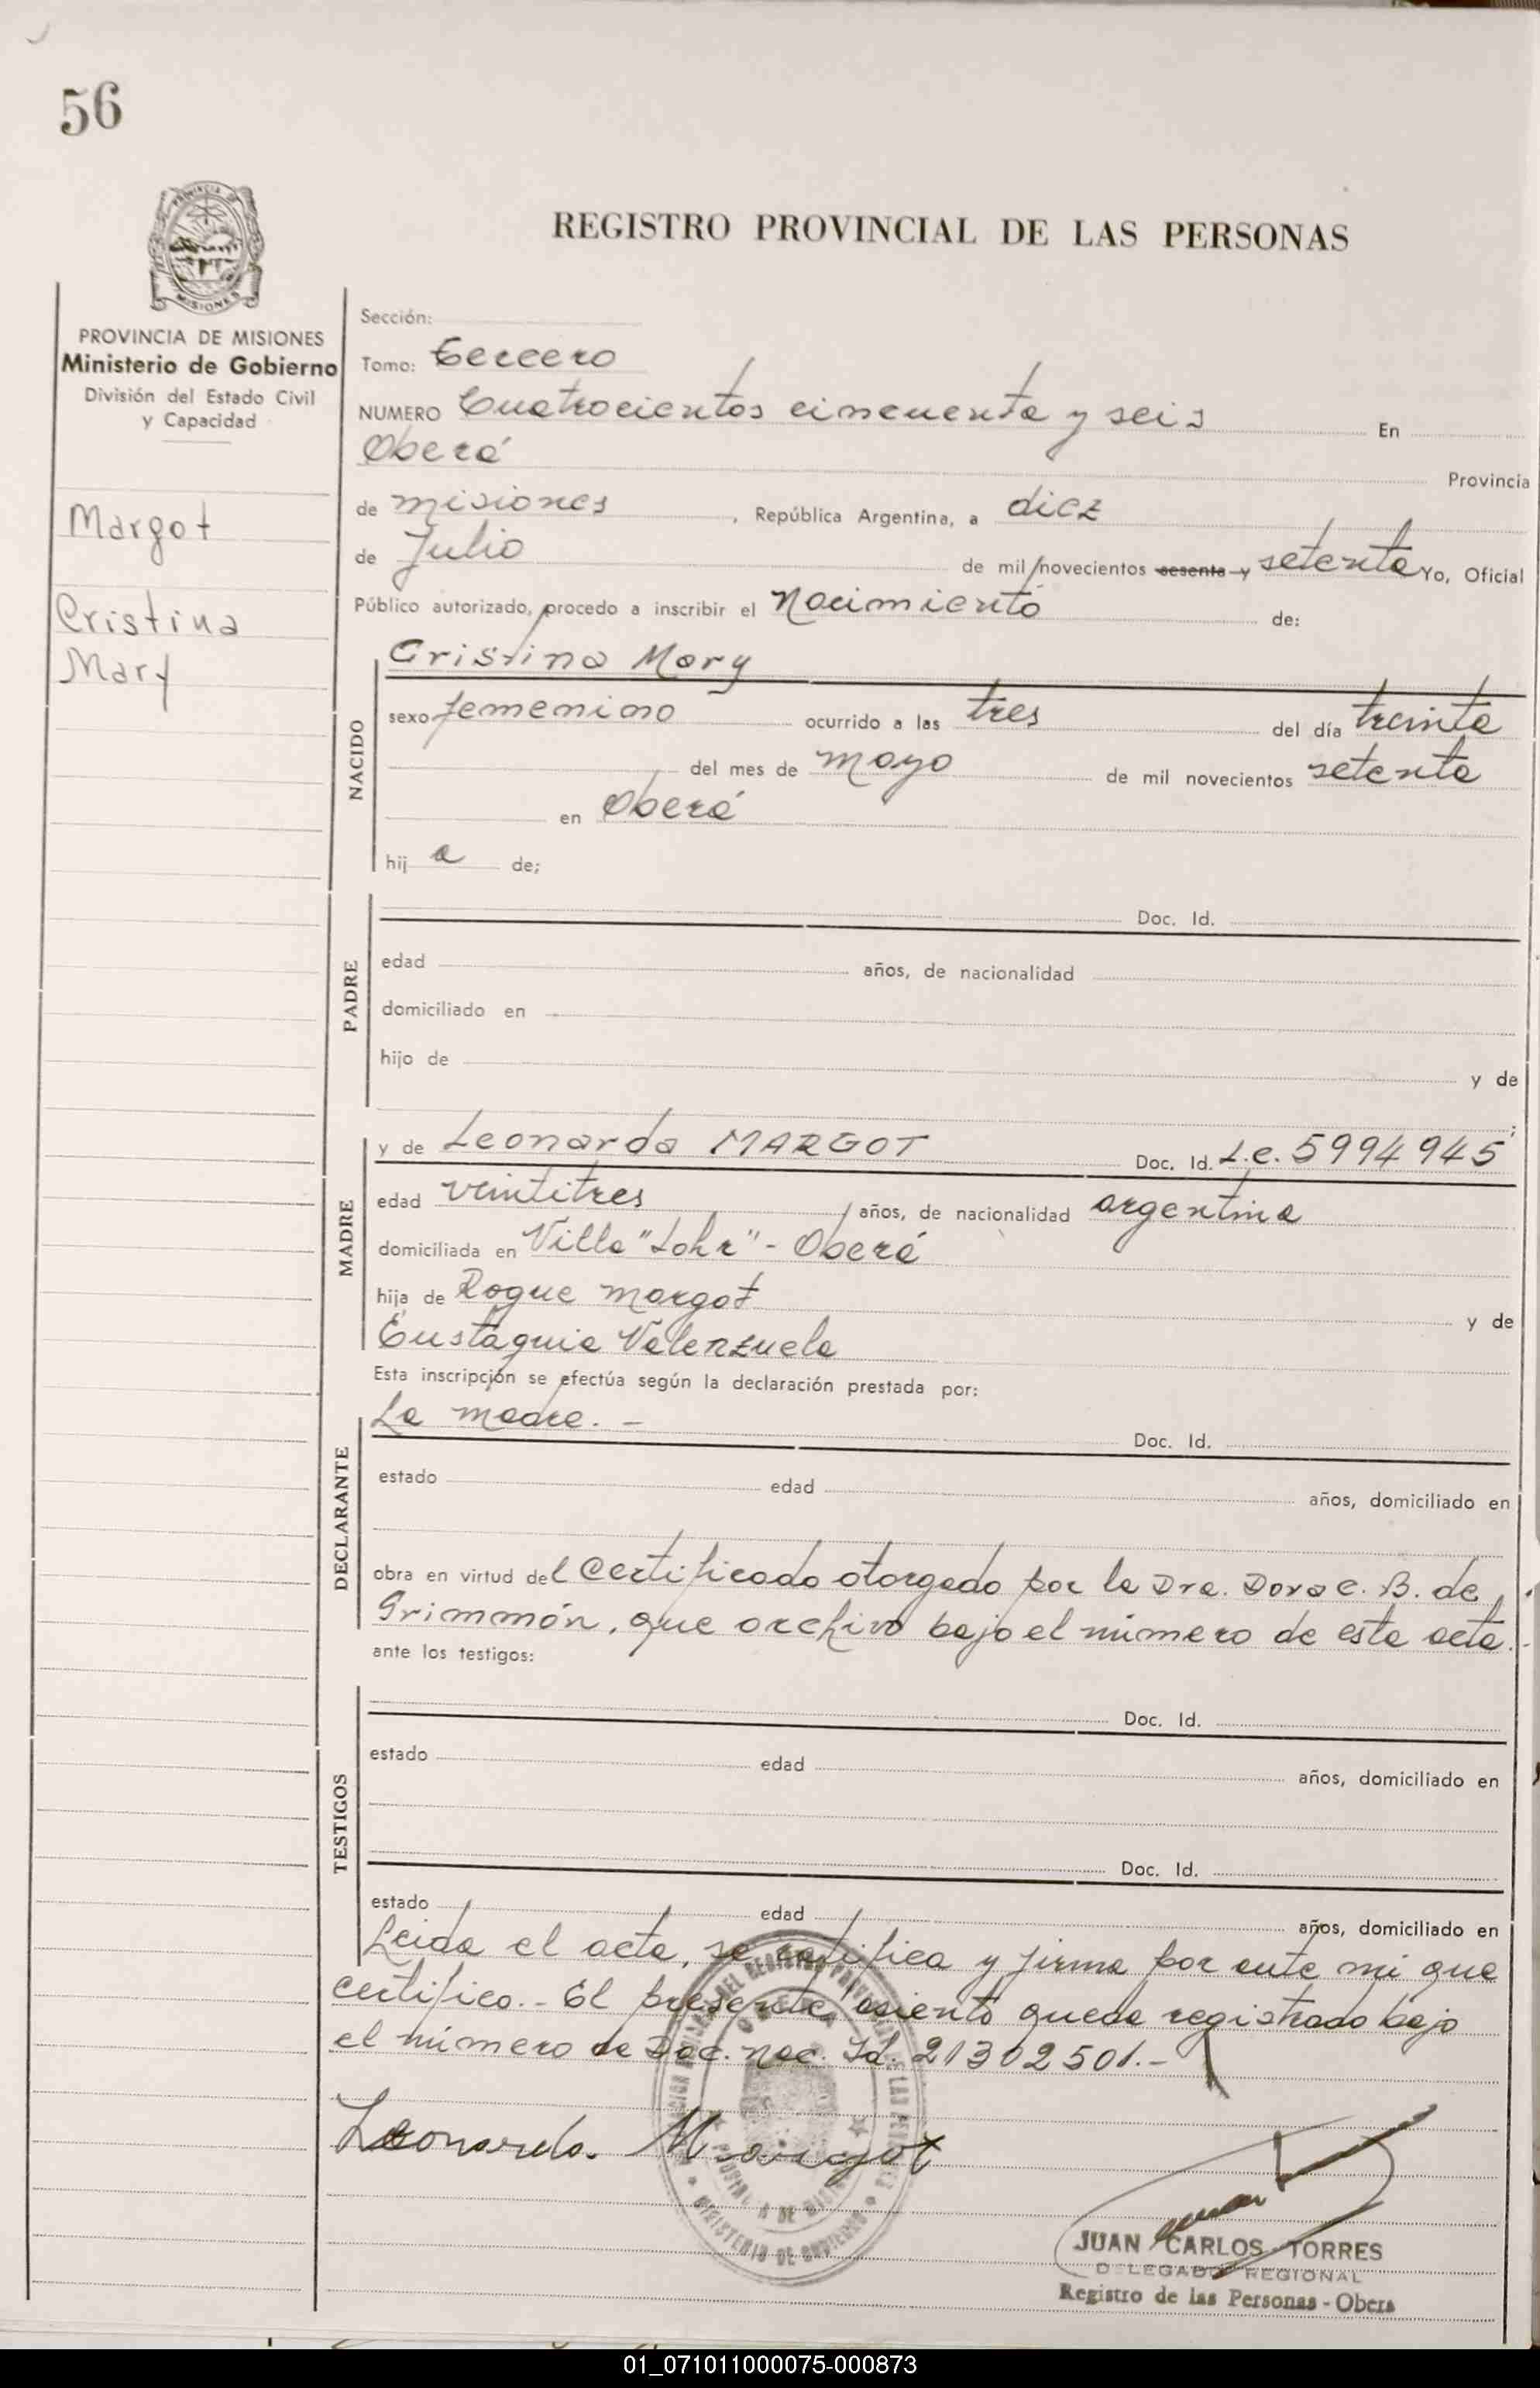 56
PROVINCIA DE MISIONES
Ministerio de Gobierno
División del Estado Civil
y Capacidad
Margot
Cristina
Mary
REGISTRO PROVINCIAL DE LAS PERSONAS
Sección:
Tomo: Tercero
NUMERO Cuatrocientos cincuenta y seis En
Oberá Provincia
de misiones, República Argentina, a diez
de Julio de mil novecientos sesenta y setenta Yo, Oficial
Público autorizado, procedo a inscribir el Nacimiento de:
NACIDO
Cristina Mary
sexo femenino ocurrido a las tres del día treinta
del mes de mayo de mil novecientos setenta
en Oberá
hij a de;
PADRE
Doc. Id.
edad años, de nacionalidad
domiciliado en
hijo de y de
MADRE
y de Leonarda MARGOT Doc. Id. L.C. 5994945
edad veintitres años, de nacionalidad argentina
domiciliada en Villa "Lohr" - Oberá
hija de Roque Margot y de
Eustaquia Valenzuela
Esta inscripción se efectúa según la declaración prestada por:
DECLARANTE
La madre. - Doc. Id.
estado edad años, domiciliado en
obra en virtud del Certificado otorgado por la Dra. Dora C. B. de
Grimmón, que archivo bajo el número de esta acta.-
ante los testigos:
TESTIGOS
Doc. Id.
estado edad años, domiciliado en
Doc. Id.
estado edad años, domiciliado en
Leida el acta, se ratifica y firma por ante mi que
certifico.- El presente asiento queda registrado bajo
el número de Doc. Nac. Id. 21302501.-
Leonarda Margot
JUAN CARLOS TORRES
DELEGADO REGIONAL
Registro de las Personas - Obera
01_071011000075-000873